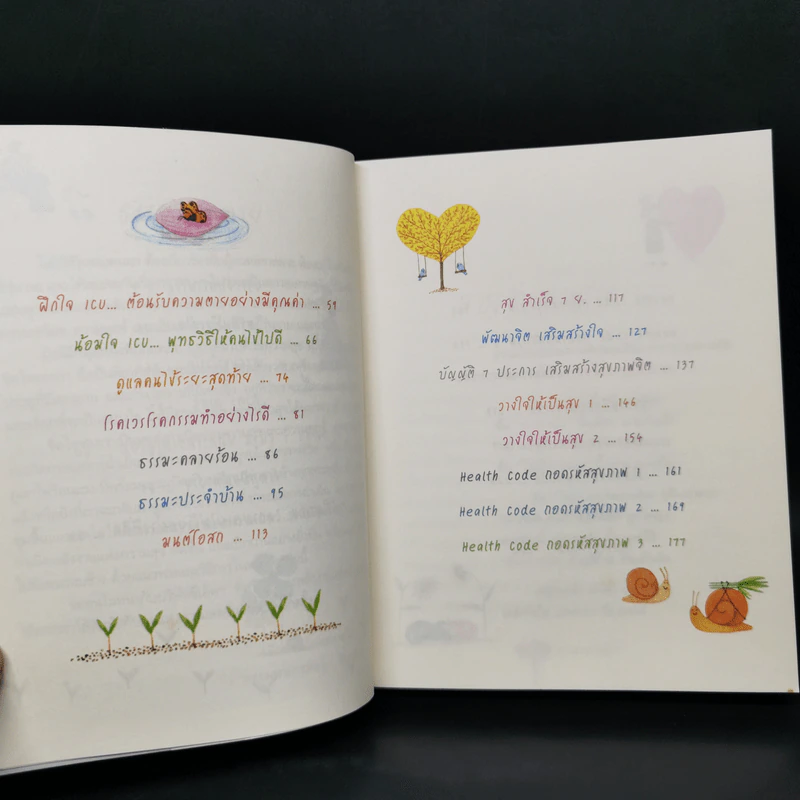 ฝึกใจ ICU... ต้อนรับความตายอย่างมีคุณค่า ... 59
น้อมใจ ICU... พุทธวิธีให้คนไข้ไปดี ... 66
ดูแลคนไข้ระยะสุดท้าย ... 74
โรคเวรโรคกรรมทำอย่างไรดี ... 81
ธรรมะคลายร้อน ... 86
ธรรมะประจำบ้าน ... 95
มนต์โอสถ ... 113
สุข สำเร็จ 7 ย. ... 117
พัฒนาจิต เสริมสร้างใจ ... 127
บัญญัติ 7 ประการ เสริมสร้างสุขภาพจิต ... 137
วางใจให้เป็นสุข 1 ... 146
วางใจให้เป็นสุข 2 ... 154
Health Code ถอดรหัสสุขภาพ 1 ... 161
Health Code ถอดรหัสสุขภาพ 2 ... 169
Health Code ถอดรหัสสุขภาพ 3 ... 177